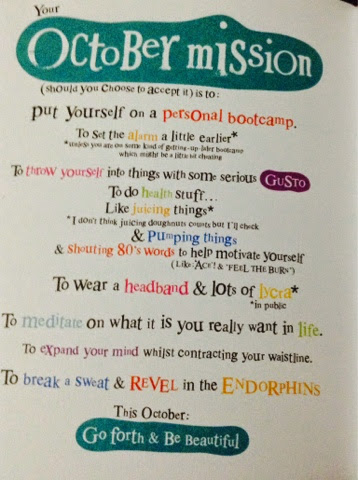 Your
October mission
(should you choose to accept it) is to:
put yourself on a personal bootcamp.
To Set the alarm a little earlier*
*unless you are some kind of getting-up later bootcamp
which might be a little bit cheating
To throw yourself into things with some serious GUSTO
To do health stuff...
Like juicing things*
*I don't think juicing doughnuts counts but I'll check
& Pumping things
& Shouting 80's words to help motivate yourself
(Like: 'ACE'! & 'FEEL THE BURN')
To wear a headband & lots of lycra*
*in public
To meditate on what it is you really want in life.
To expand your mind whilst contracting your waistline.
To break a sweat & REVEL in the ENDORPHINS
This October:
Go forth & Be Beautiful